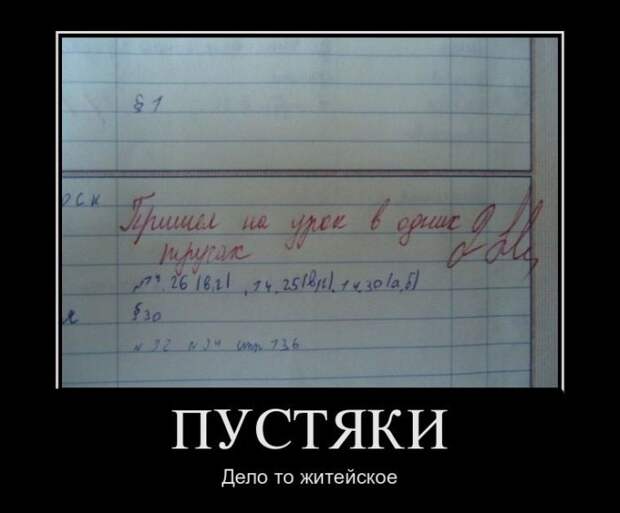 § 1
Пришел на урок в одних 2
трусах
14.26(в,г), 14.25(в,г), 14.30(а,б)
§30
стр. 136
ПУСТЯКИ
Дело то житейское